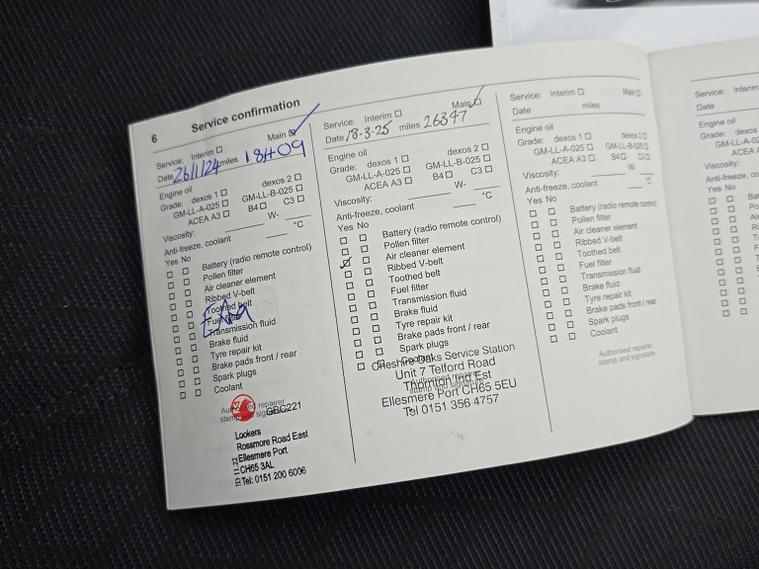 6 Service confirmation
Service: Interim Main
Date 26/1/24 miles 18409
Engine oil
Grade: dexos 1 dexos 2
GM-LL-A-025 GM-LL-B-025
ACEA A3 B4 C3
Viscosity: W-
Anti-freeze, coolant °C
Yes No
Battery (radio remote control)
Pollen filter
Air cleaner element
Ribbed V-belt
Toothed belt
Fuel filter
Transmission fluid
Brake fluid
Tyre repair kit
Brake pads front / rear
Spark plugs
Coolant
Authorised repairer
stamp and signature
GBC221
Lookers
Rossmore Road East
Ellesmere Port
CH65 3AL
Tel: 0151 200 6006
Service: Interim Main
Date 18-3-25 miles 26347
Engine oil
Grade: dexos 1 dexos 2
GM-LL-A-025 GM-LL-B-025
ACEA A3 B4 C3
Viscosity: W-
Anti-freeze, coolant °C
Yes No
Battery (radio remote control)
Pollen filter
Air cleaner element
Ribbed V-belt
Toothed belt
Fuel filter
Transmission fluid
Brake fluid
Tyre repair kit
Brake pads front / rear
Spark plugs
Coolant
Cheshire Oaks Service Station
Unit 7 Telford Road
Thornton Ind Est
Authorised repairer
stamp and signature
Ellesmere Port CH65 5EU
Tel 0151 356 4757
Service: Interim Main
Date miles
Engine oil
Grade: dexos 1 dexos 2
GM-LL-A-025 GM-LL-B-025
ACEA A3 B4 C3
Viscosity: W-
Anti-freeze, coolant °C
Yes No
Battery (radio remote control)
Pollen filter
Air cleaner element
Ribbed V-belt
Toothed belt
Fuel filter
Transmission fluid
Brake fluid
Tyre repair kit
Brake pads front / rear
Spark plugs
Coolant
Authorised repairer
stamp and signature
Service: Interim
Date
Engine oil
Grade:
GM-LL-A
ACEA
Viscosity:
Anti-freeze, co
Yes No